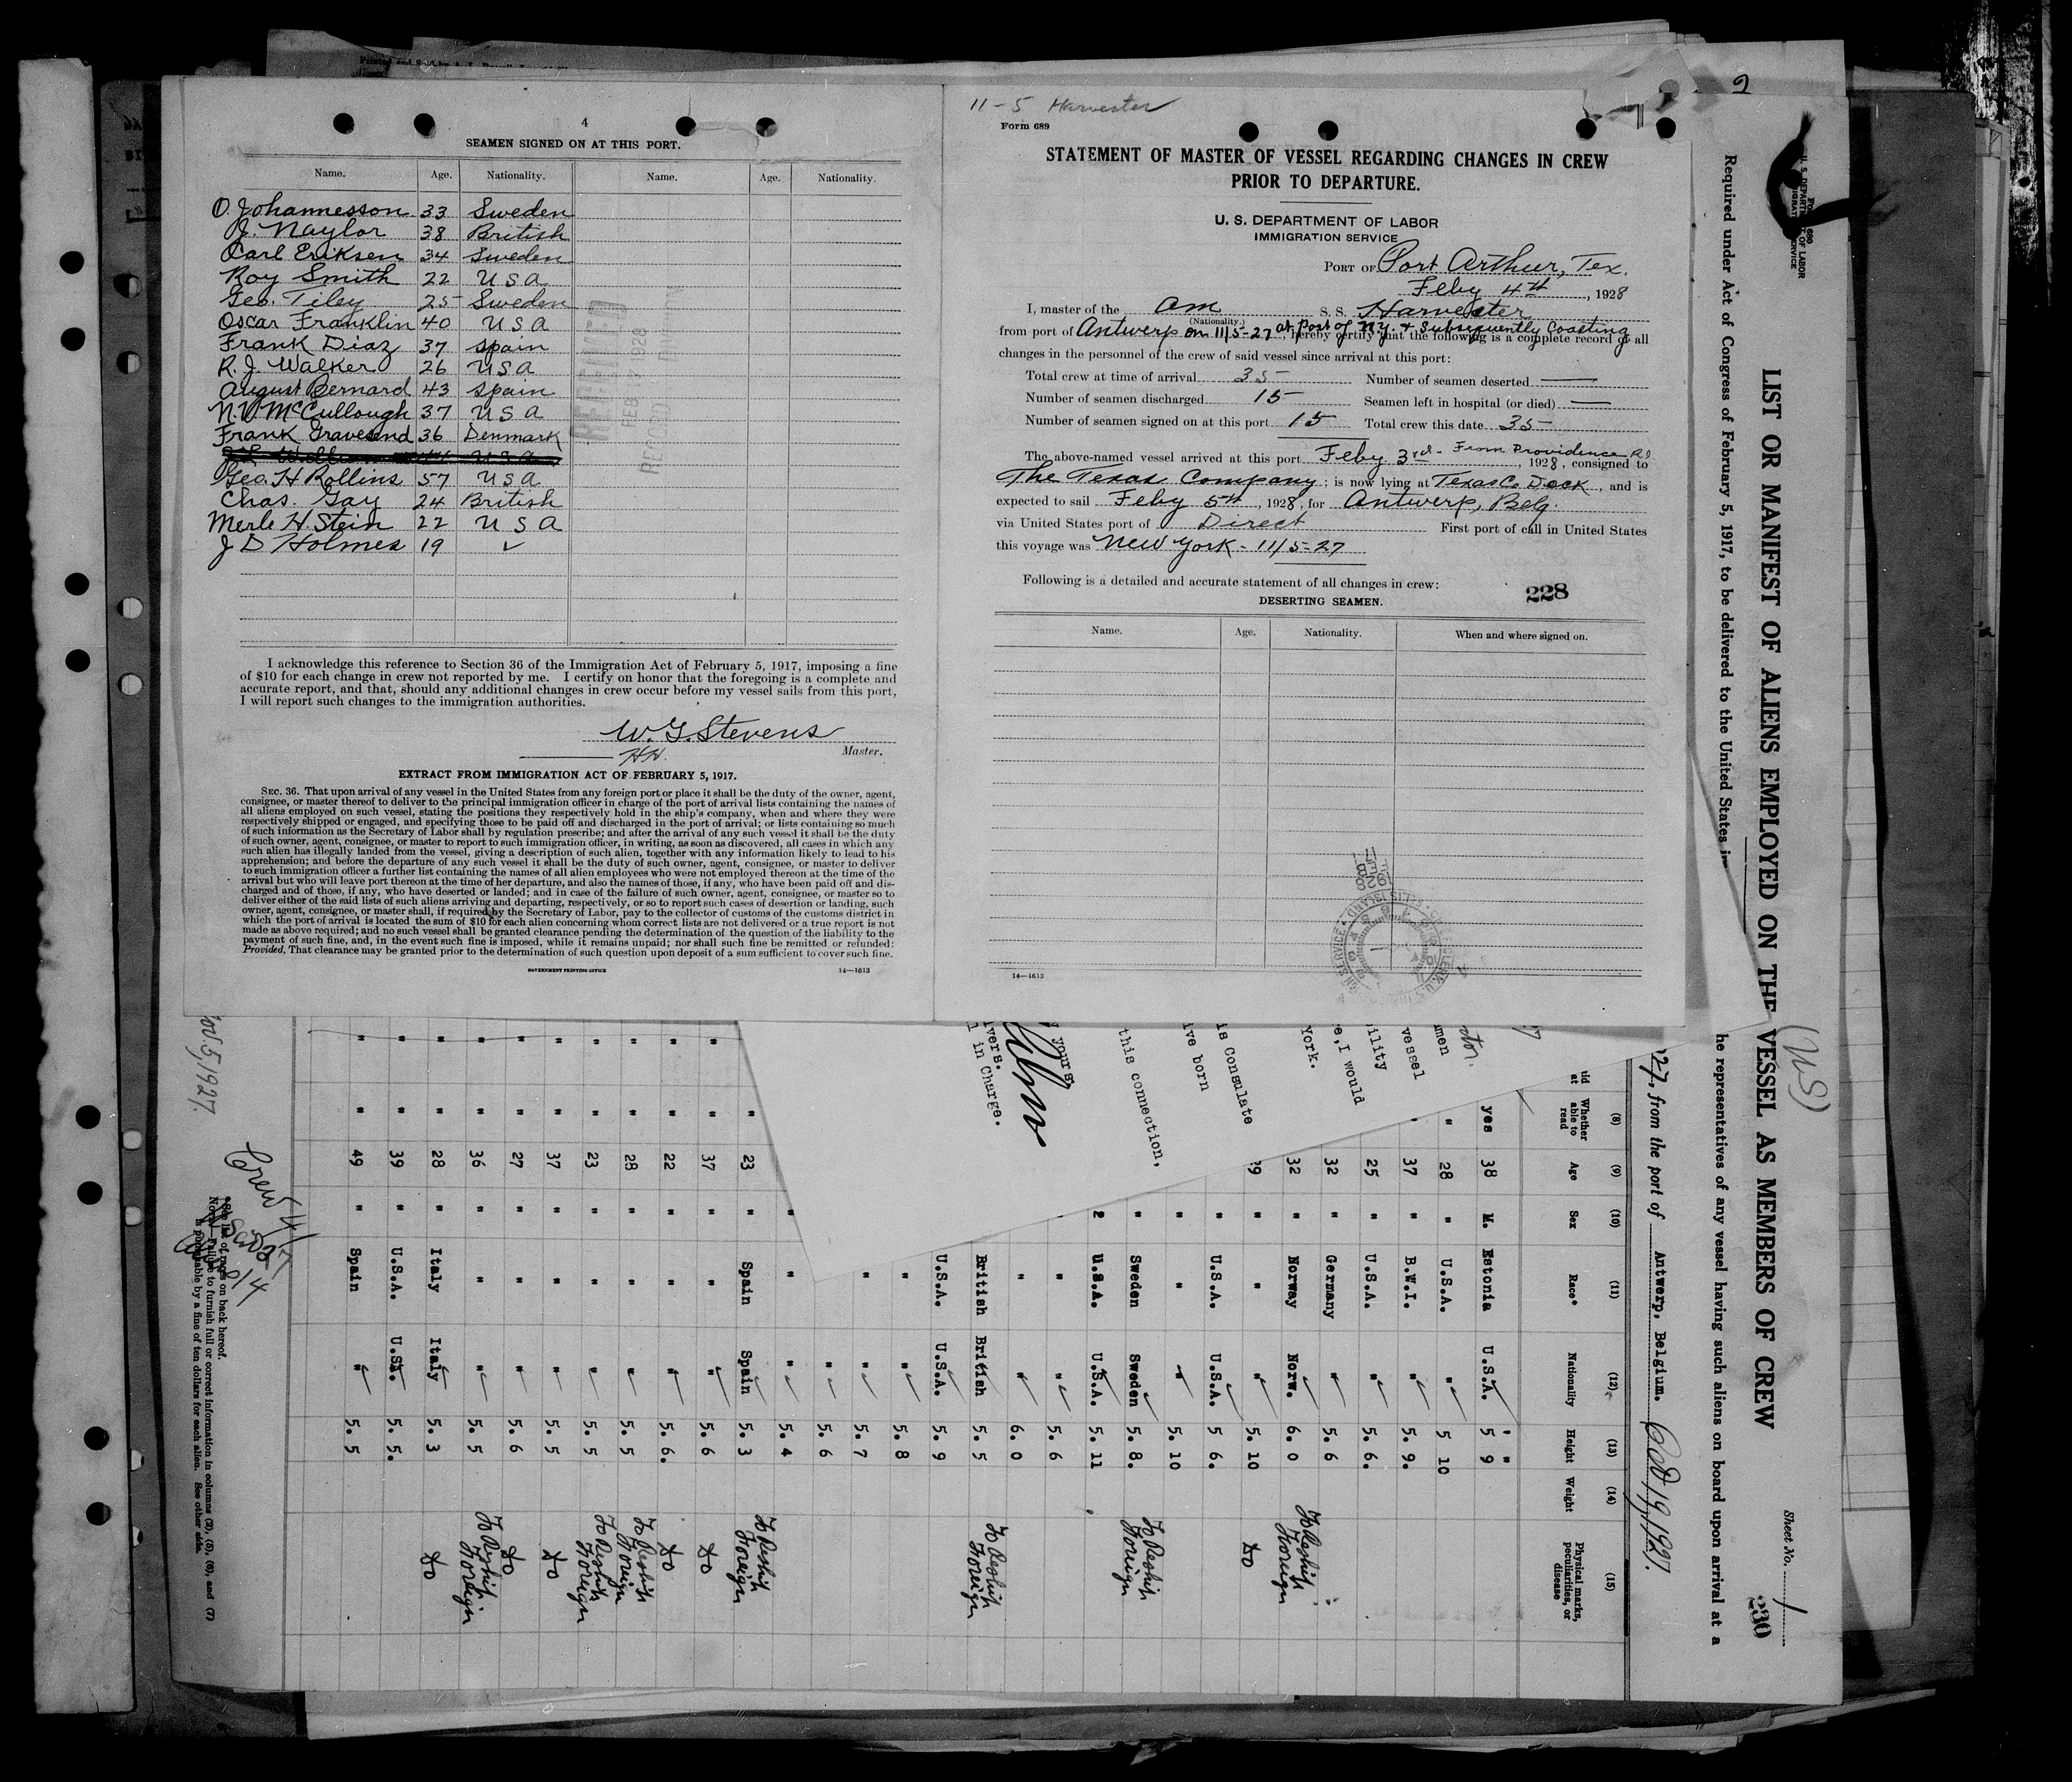 4
SEAMEN SIGNED ON AT THIS PORT.
Name. Age. Nationality. Name. Age. Nationality.
O. Johannesson 33 Sweden
J. Naylor 38 British
Carl Eriksen 34 Sweden
Roy Smith 22 USA
Geo. Tiley 25 Sweden
Oscar Franklin 40 USA
Frank Diaz 37 Spain
R. J. Walker 26 USA
August Bernard 43 Spain
N. V. McCullough 37 USA
Frank Gravesend 36 Denmark
Geo. H Rollins 57 USA
Chas. Gay 24 British
Merle H. Stein 22 USA
J D Holmes 19 ✓
RECEIVED
FEB 1928
RECORD
I acknowledge this reference to Section 36 of the Immigration Act of February 5, 1917, imposing a fine
of $10 for each change in crew not reported by me. I certify on honor that the foregoing is a complete and
accurate report, and that, should any additional changes in crew occur before my vessel sails from this port,
I will report such changes to the immigration authorities.
W. G. Stevens
H.H. Master.
EXTRACT FROM IMMIGRATION ACT OF FEBRUARY 5, 1917.
SEC. 36. That upon arrival of any vessel in the United States from any foreign port or place it shall be the duty of the owner, agent,
consignee, or master thereof to deliver to the principal immigration officer in charge of the port of arrival lists containing the names of
all aliens employed on such vessel, stating the positions they respectively hold in the ship's company, when and where they were
respectively shipped or engaged, and specifying those to be paid off and discharged in the port of arrival; or lists containing so much
of such information as the Secretary of Labor shall by regulation prescribe; and after the arrival of any such vessel it shall be the duty
of such owner, agent, consignee, or master to report to such immigration officer, in writing, as soon as discovered, all cases in which any
such alien has illegally landed from the vessel, giving a description of such alien, together with any information likely to lead to his
apprehension; and before the departure of any such vessel it shall be the duty of such owner, agent, consignee, or master to deliver
to such immigration officer a further list containing the names of all alien employees who were not employed thereon at the time of the
arrival but who will leave port thereon at the time of her departure, and also the names of those, if any, who have been paid off and dis-
charged and of those, if any, who have deserted or landed; and in case of the failure of such owner, agent, consignee, or master so to
deliver either of the said lists of such aliens arriving and departing, respectively, or so to report such cases of desertion or landing, such
owner, agent, consignee, or master shall, if required by the Secretary of Labor, pay to the collector of customs of the customs district in
which the port of arrival is located the sum of $10 for each alien concerning whom correct lists are not delivered or a true report is not
made as above required; and no such vessel shall be granted clearance pending the determination of the question of the liability to the
payment of such fine, and, in the event such fine is imposed, while it remains unpaid; nor shall such fine be remitted or refunded:
Provided, That clearance may be granted prior to the determination of such question upon deposit of a sum sufficient to cover such fine.
GOVERNMENT PRINTING OFFICE 14—1613
11-5 Harvester
Form 689
STATEMENT OF MASTER OF VESSEL REGARDING CHANGES IN CREW
PRIOR TO DEPARTURE.
U. S. DEPARTMENT OF LABOR
IMMIGRATION SERVICE
PORT OF Port Arthur, Tex.
Feby 4th, 1928
I, master of the Am S. S. Harvester
(Nationality.)
from port of Antwerp on 11/5-27 at Port of N.Y. & Subsequently Coasting, hereby certify that the following is a complete record of all
changes in the personnel of the crew of said vessel since arrival at this port:
Total crew at time of arrival 35 Number of seamen deserted —
Number of seamen discharged 15 Seamen left in hospital (or died) —
Number of seamen signed on at this port 15 Total crew this date 35
The above-named vessel arrived at this port Feby 3rd - From Providence RI, 1928, consigned to
The Texas Company; is now lying at Texas Co Dock, and is
expected to sail Feby 5th, 1928, for Antwerp, Belg.
via United States port of Direct First port of call in United States
this voyage was New York - 11/5-27
Following is a detailed and accurate statement of all changes in crew:
228
DESERTING SEAMEN.
Name. Age. Nationality. When and where signed on.
14—1613
2
U. S. DEPARTMENT OF LABOR
Sheet No. 1
230
LIST OR MANIFEST OF ALIENS EMPLOYED ON THE VESSEL AS MEMBERS OF CREW
(US)
Required under Act of Congress of February 5, 1917, to be delivered to the United States
he representatives of any vessel having such aliens on board upon arrival at a
27, from the port of Antwerp, Belgium. Oct 19, 1927.
(8) (9) (10) (11) (12) (13) (14) (15)
Whether able to read Age Sex Race* Nationality Height Weight Physical marks, peculiarities, or disease
yes 38 M. Estonia U.S.A. 5 9
" 28 " U.S.A. " 5 10
" 37 " B.W.I. " 5. 9.
25 " U.S.A. " 5. 6.
32 " Germany " 5. 6
32 " Norway Norw. 6. 0 To Reship Foreign
" " " 5. 10 Do
" U.S.A. U.S.A. 5 6.
" " " 5. 10
" Sweden Sweden 5. 8. To Reship Foreign
U.S.A. U.S.A. 5. 11
" " 5. 6
" " 6. 0
British British 5. 5 To Reship Foreign
U.S.A. U.S.A. 5. 9
" " 5. 8
" " 5. 7
" 5. 6
" " " 5. 4
" 23 " Spain Spain 5. 3 To Reship Foreign
" 37 " " " 5. 6 Do
" 22 " " " 5. 6. Do
" 28 " " " 5. 5 To Reship Foreign
" 23 " " " 5. 5 To Reship Foreign
" 37 " " " 5. 5 Do
" 27 " " " 5. 6 Do
" 36 " " " 5. 5 To Reship Foreign
" 28 " Italy Italy 5. 3 Do
" 39 " U.S.A. U.S. 5. 5.
" 49 " Spain " 5. 5
men
vessel
ility
e, I would
York.
is Consulate
ive born
this connection,
yours,
ivers.
in Charge.
Nov. 5, 1927.
Crew 4
*See list of races on back hereof.
NOTE.—Failure to furnish full or correct information in columns (2), (5), (6), and (7)
is punishable by a fine of ten dollars for each alien. See other side.